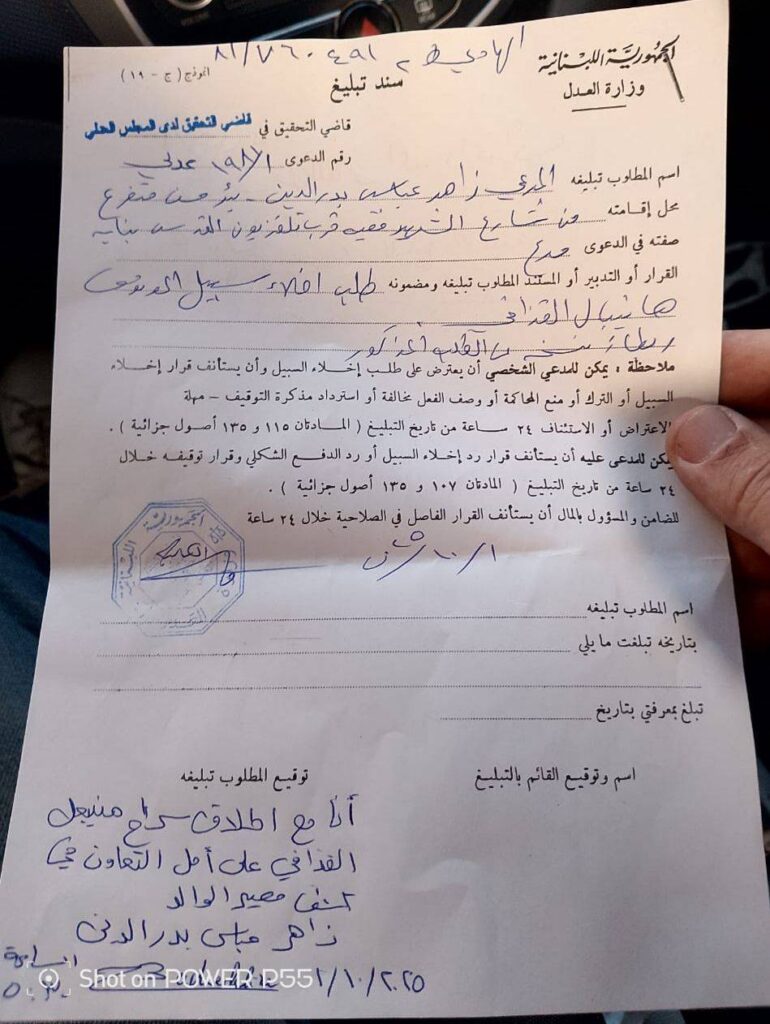 الهادي ٨١/٧٦٠٤٩١
الجمهورية اللبنانية
وزارة العدل
سند تبليغ
انموذج (ج - ١٩)
قاضي التحقيق في قاضي التحقيق لدى المجلس العدلي
رقم الدعوى ١/ عدلي
اسم المطلوب تبليغه المدعي زاهر عباس بدرالدين - بئر حسن متفرع
محل إقامته من شارع الشهيد فقيه قرب تلفزيون القدس بناية
صفته في الدعوى مدع
القرار أو التدبير أو المستند المطلوب تبليغه ومضمونه طلب اخلاء سبيل الموقوف
هانيبال القذافي
ربطاً نسخة الطلب المذكور
ملاحظة : يمكن للمدعي الشخصي أن يعترض على طلب إخلاء السبيل وأن يستأنف قرار إخلاء
السبيل أو الترك أو منع المحاكمة أو وصف الفعل بمخالفة أو استرداد مذكرة التوقيف - مهلة
الاعتراض أو الاستئناف ٢٤ ساعة من تاريخ التبليغ ( المادتان ١١٥ و ١٣٥ أصول جزائية ) .
يمكن للمدعى عليه أن يستأنف قرار رد إخلاء السبيل أو رد الدفع الشكلي وقرار توقيفه خلال
٢٤ ساعة من تاريخ التبليغ ( المادتان ١٠٧ و ١٣٥ أصول جزائية ) .
للضامن والمسؤول بالمال أن يستأنف القرار الفاصل في الصلاحية خلال ٢٤ ساعة
اسم المطلوب تبليغه
بتاريخه تبلغت ما يلي
تبلغ بمعرفتي بتاريخ
اسم وتوقيع القائم بالتبليغ
توقيع المطلوب تبليغه
أنا مع اطلاق سراح هنيبعل
القذافي على أمل التعاون في
كشف مصير الوالد
زاهر عباس بدر الدين
١/١٠/٢٠٢٥
الساعة
Shot on POWER P55